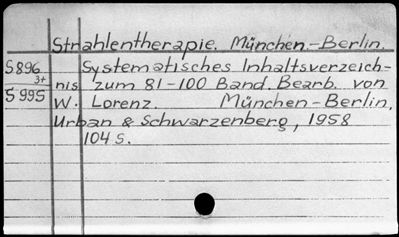 Strahlentherapie. München.-Berlin.
S896 Systematisches Inhaltsverzeich-
3+
S995 nis zum 81-100 Band. Bearb. von
W. Lorenz. München-Berlin,
Urban & Schwarzenberg, 1958
104 S.